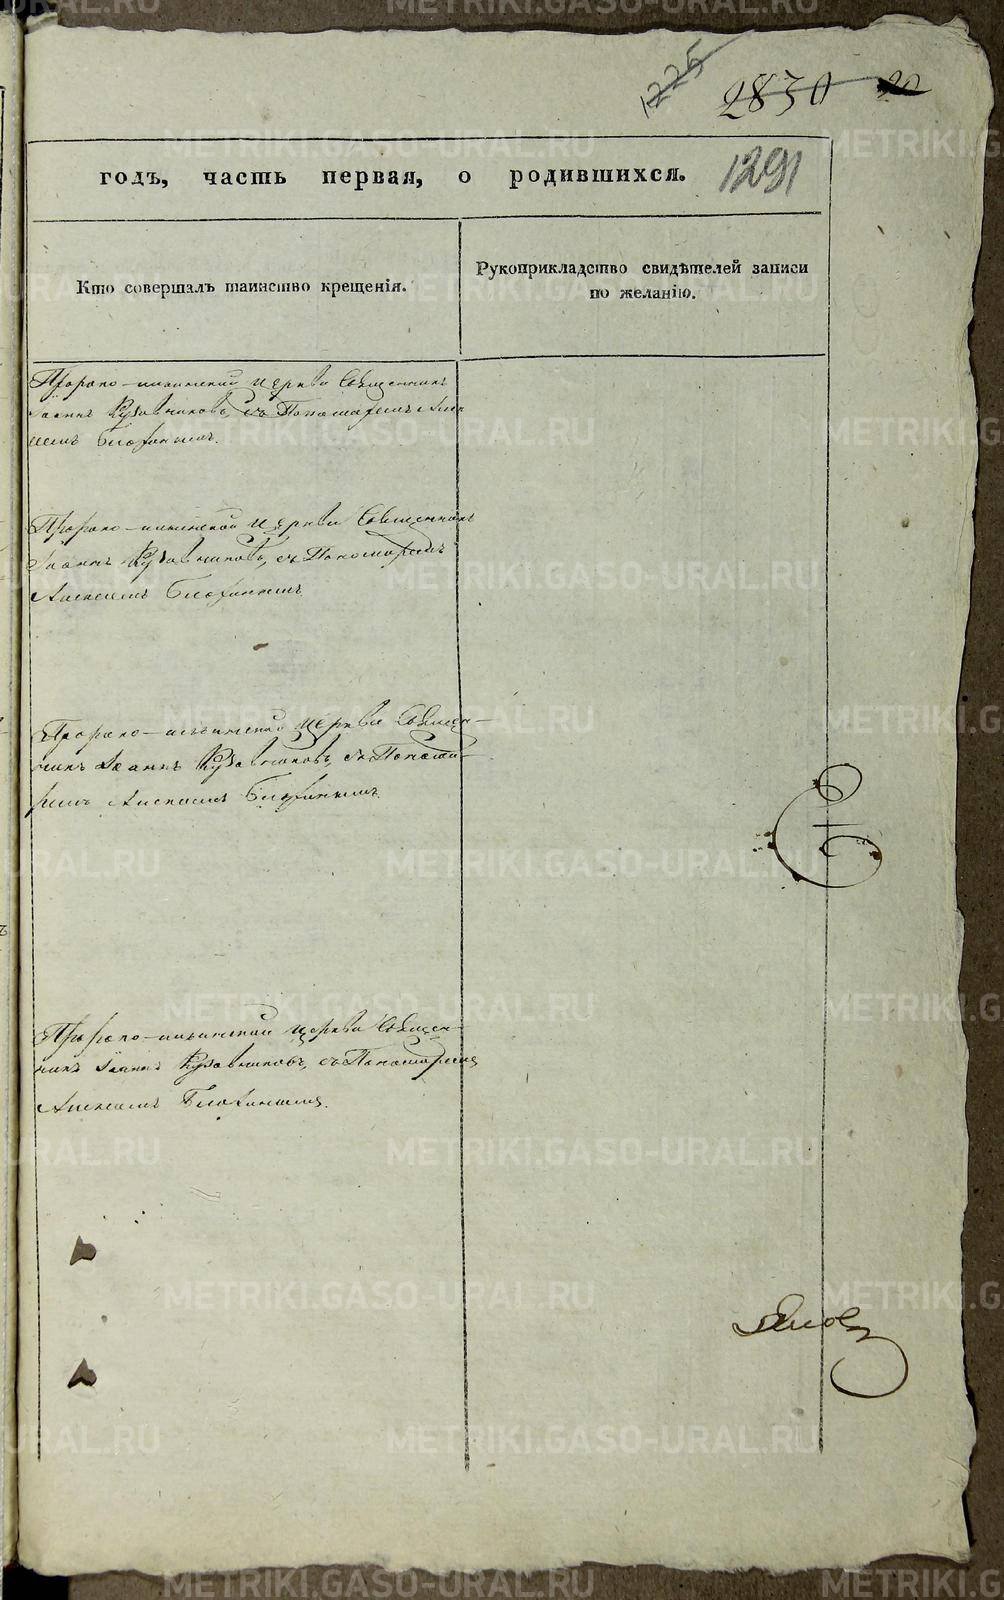 225
2830
20
1291
годъ, часть первая, о родившихся.
Кто совершалъ таинство крещенія.
Рукоприкладство свидѣтелей записи
по желанію.
Пророко-ильинской церкви Священникъ
Іоаннъ Кузовниковъ, съ Пономаремъ Алек
сеемъ
Пророко-ильинской церкви Священникъ
Іоаннъ Кузовниковъ, съ Пономаремъ
Алексеемъ
Пророко-ильинской церкви Священ-
никъ Іоаннъ Кузовниковъ, съ Понома-
ремъ Алексеемъ
Пророко-ильинской церкви Священ-
никъ Іоаннъ Кузовниковъ, съ Пономаремъ
Алексеемъ
METRIKI.GASO-URAL.RU